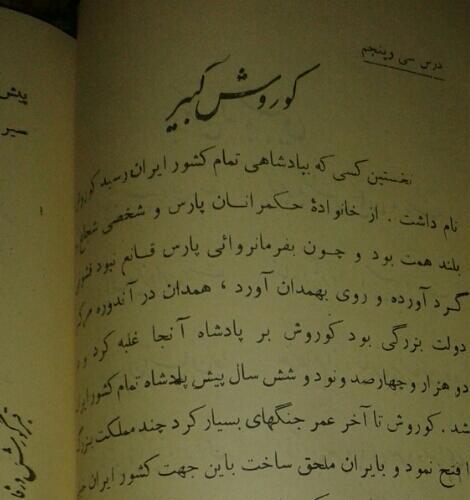 درس سی وپنجم
کوروش کبیر
نخستین کسی که بپادشاهی تمام کشور ایران رسید کوروش
نام داشت . از خانوادهٔ حکمرانان پارس و شخصی شجاع
بلند همت بود و چون بفرمانروائی پارس قانع نبود قشونی
گرد آورده و روی بهمدان آورد ، همدان در آندوره مرکز
دولت بزرگی بود کوروش بر پادشاه آنجا غلبه کرد و
دو هزار و چهار صد و نود و شش سال پیش پادشاه تمام کشور ایران
شد. کوروش تا آخر عمر جنگهای بسیار کرد چند مملکت بزرگ
را فتح نمود و بایران ملحق ساخت باین جهت کشور ایران